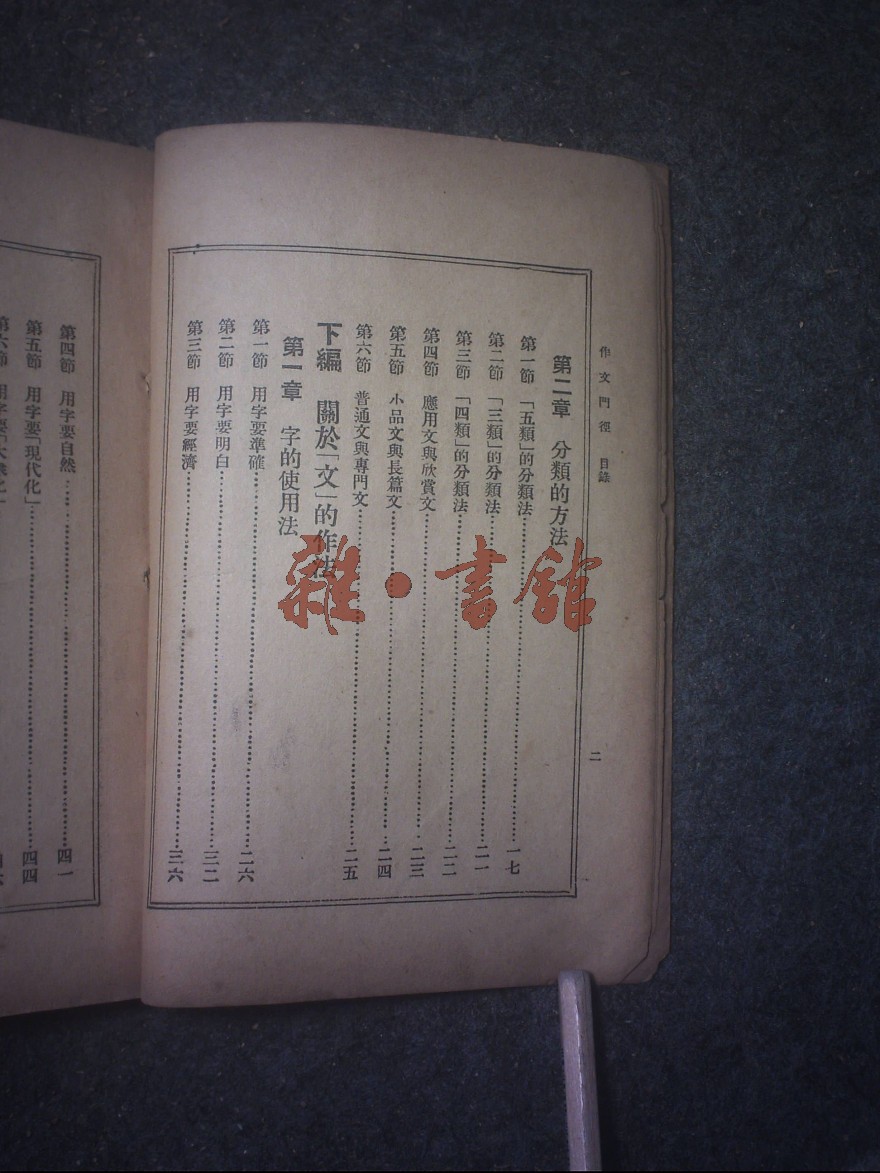 作文門徑 目錄
二
第二章 分類的方法
第一節 「五類」的分類法……一七
第二節 「三類」的分類法……二一
第三節 「四類」的分類法……二二
第四節 應用文與欣賞文……二三
第五節 小品文與長篇文……二四
第六節 普通文與專門文……二五
下編 關於「文」的作法
第一章 字的使用法
第一節 用字要準確……二六
第二節 用字要明白……三二
第三節 用字要經濟……三六
第四節 用字要自然……四一
第五節 用字要「現代化」……四四
第六節 用字要
雜·書館